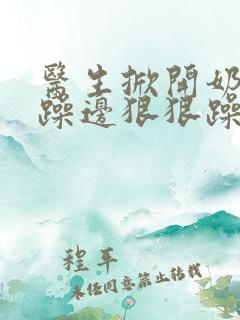 醫生掀開奶
躁邊狠狠躁
程平
未任同意禁止转载